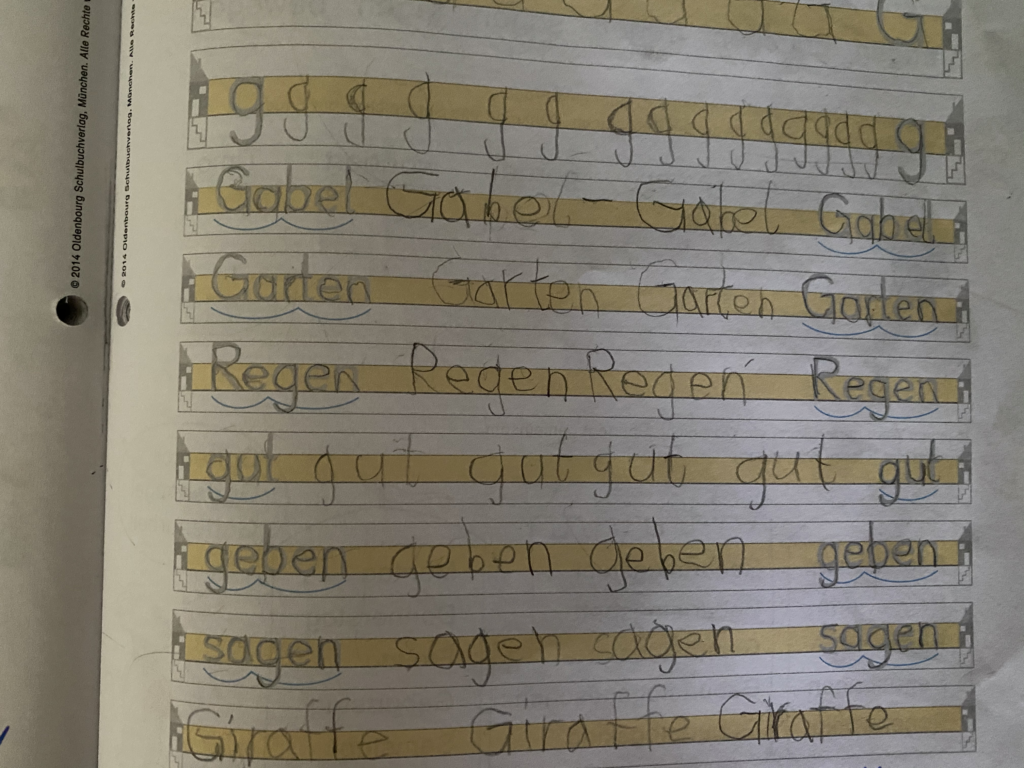 © 2014 Oldenbourg Schulbuchverlag, München. Alle Rechte
© 2014 Oldenbourg Schulbuchverlag, München. Alle Rechte
G
g g g g g g g g g g g g g g g g
Gabel Gabel - Gabel Gabel
Garten Garten Garten Garten
Regen Regen Regen Regen
gut gut gut gut gut gut
geben geben geben geben
sagen sagen sagen sagen
Giraffe Giraffe Giraffe